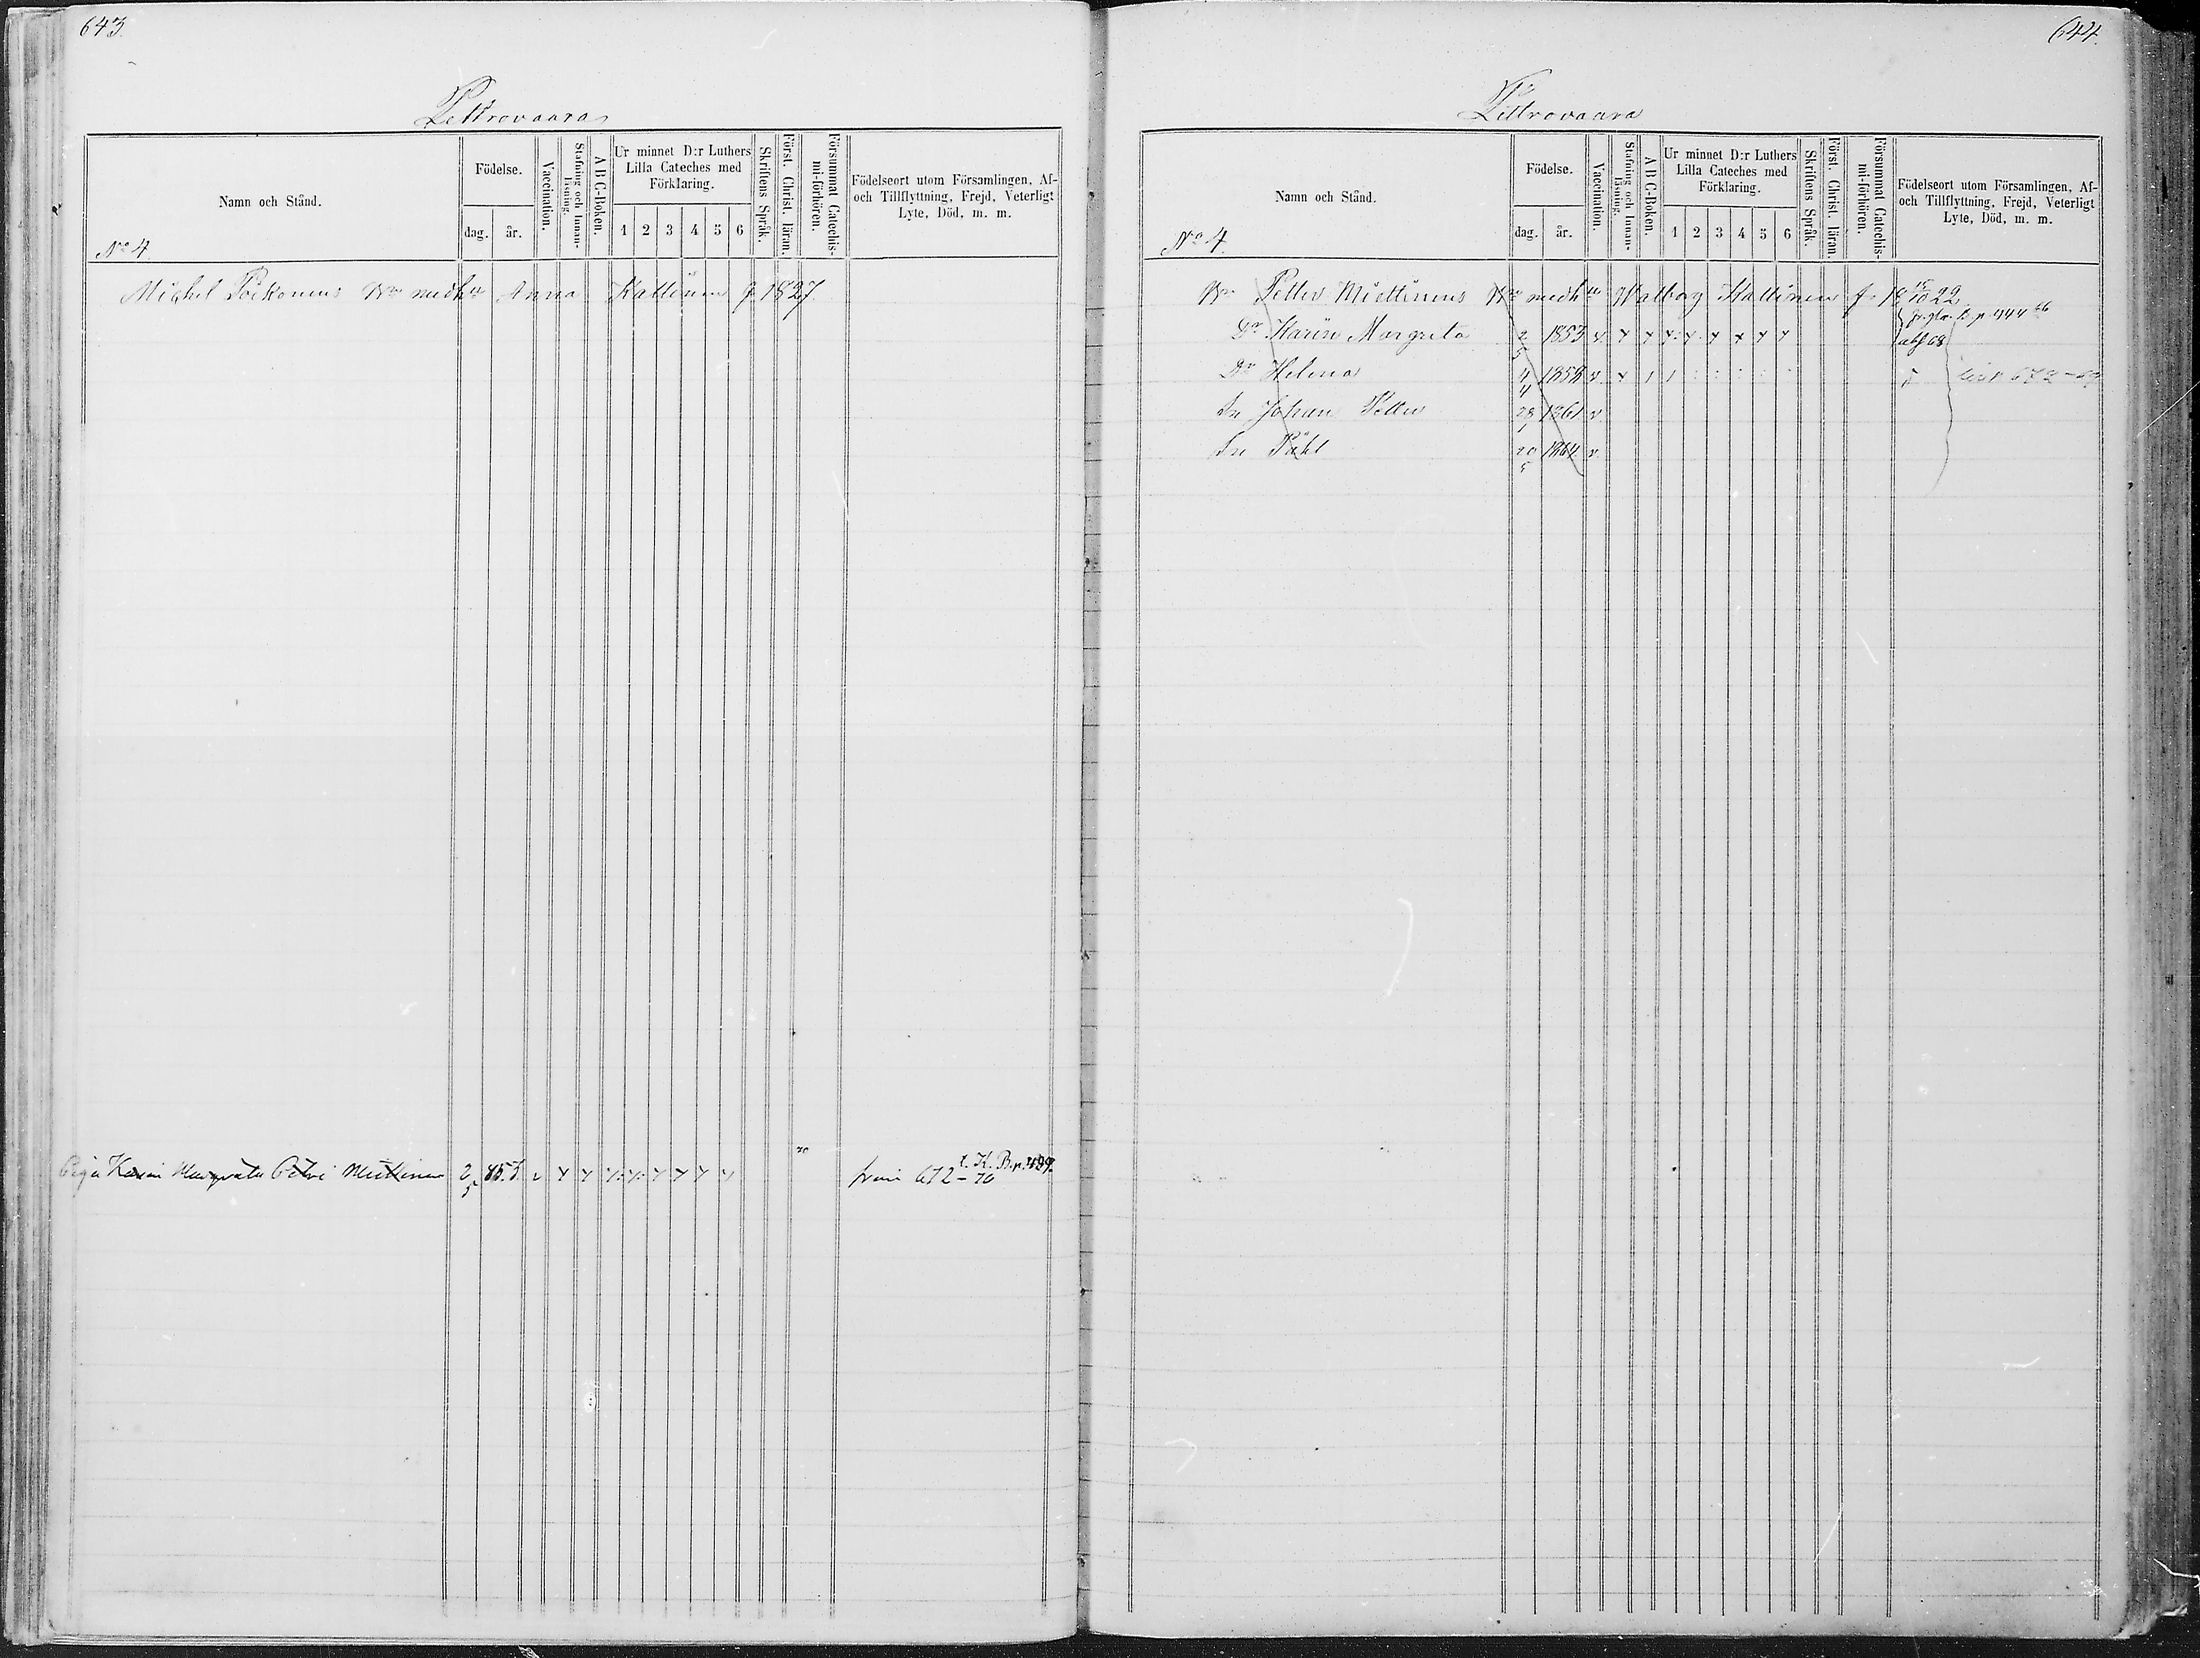 643.
Pettrovaara
Namn och Stånd.
Födelse.
dag. år.
Vaccination.
Stafning och Innan-
läsning.
A B C-Boken.
Ur minnet D:r Luthers
Lilla Cateches med
Förklaring.
1 2 3 4 5 6
Skriftens Språk.
Först. Christ. läran.
Försummat Catechis-
mi-förhören.
Födelseort utom Församlingen, Af-
och Tillflyttning, Frejd, Veterligt
Lyte, Död, m. m.
No 4
Michel Pöikonens medh Anna Kattinen f 1827.
Karin Margreta Petri Miettinen 2/5 853. v
från 672-70 t. K. B. p. 489.
644.
Pettrovaara
Namn och Stånd.
Födelse.
dag. år.
Vaccination.
Stafning och Innan-
läsning.
A B C-Boken.
Ur minnet D:r Luthers
Lilla Cateches med
Förklaring.
1 2 3 4 5 6
Skriftens Språk.
Först. Christ. läran.
Försummat Catechis-
mi-förhören.
Födelseort utom Församlingen, Af-
och Tillflyttning, Frejd, Veterligt
Lyte, Död, m. m.
No 4.
Petter Miettinens medh Walborg Kattinen f. 18 15/10 22
Dr Karin Margreta 2/5 1853 v.
Dr Helena 4/4 1858 v.
Sn Johan Petter 28/1 1861 v.
Sn Påhl 20/5 1864 v.